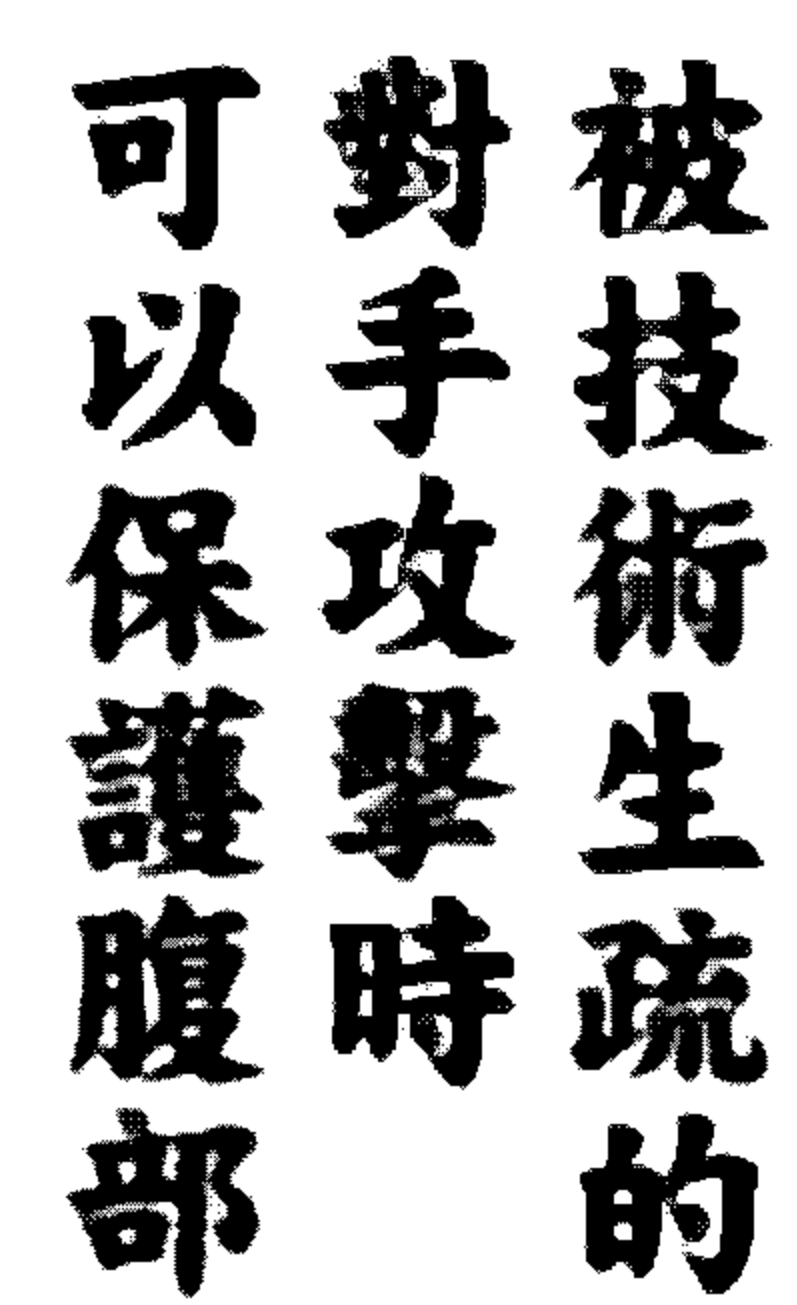 被技術生疏的
對手攻擊時
可以保護腹部